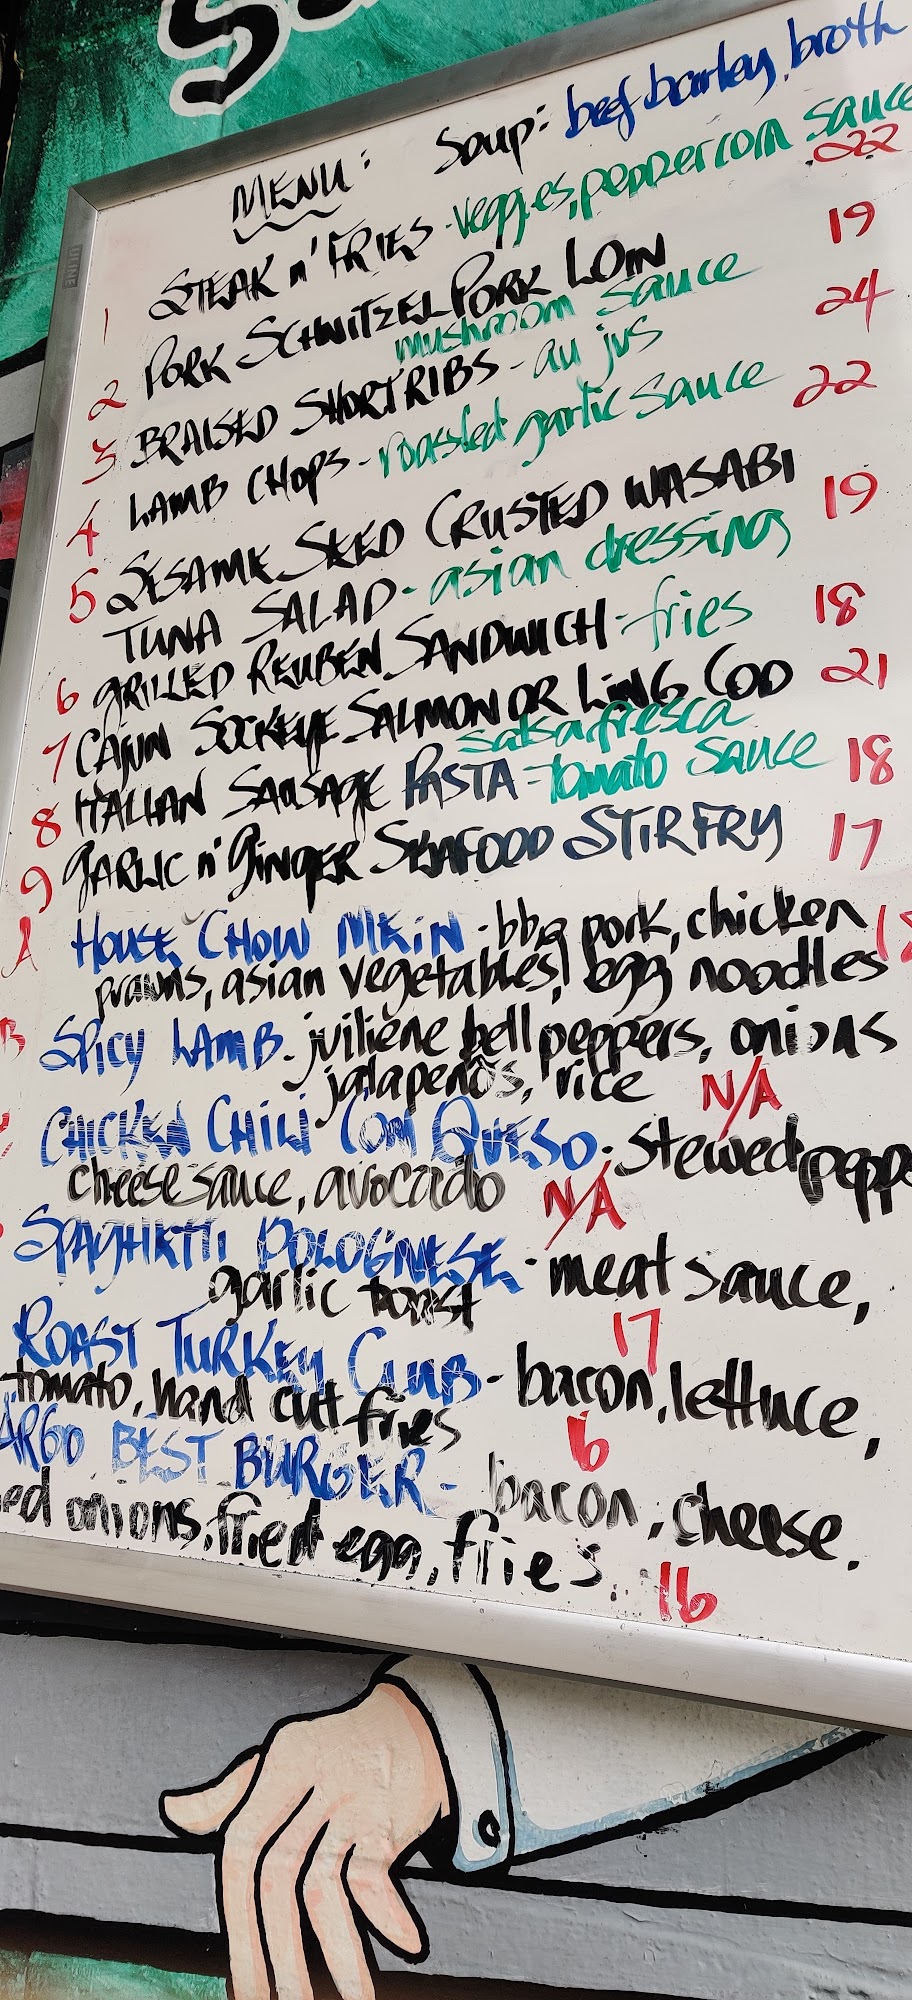 Soup: beef barley, broth
MENU:
1 STEAK n' FRIES - veggies, peppercorn sauce 22
2 PORK SCHNITZEL PORK LOIN 19
mushroom sauce
3 BRAISED SHORT RIBS - au jus 24
4 LAMB CHOPS - roasted garlic sauce 22
5 SESAME SEED CRUSTED WASABI 19
TUNA SALAD - asian dressing
6 GRILLED REUBEN SANDWICH - fries 18
7 CAJUN SOCKEYE SALMON OR LING COD 21
salsa fresca
8 ITALIAN SAUSAGE PASTA - tomato sauce 18
9 GARLIC n' GINGER SEAFOOD STIR FRY 17
A HOUSE CHOW MEIN - bbq pork, chicken
prawns, asian vegetables, egg noodles
B SPICY LAMB - juiliene bell peppers, onions
jalapenos, rice N/A
CHICKEN CHILI CON QUESO - stewed peppe
cheese sauce, avocado N/A
SPAGHETTI BOLOGNESE - meat sauce,
garlic toast 17
ROAST TURKEY CLUB - bacon, lettuce,
tomato, hand cut fries 6
ARGO BEST BURGER - bacon, cheese.
ed onions, fried egg, fries 16